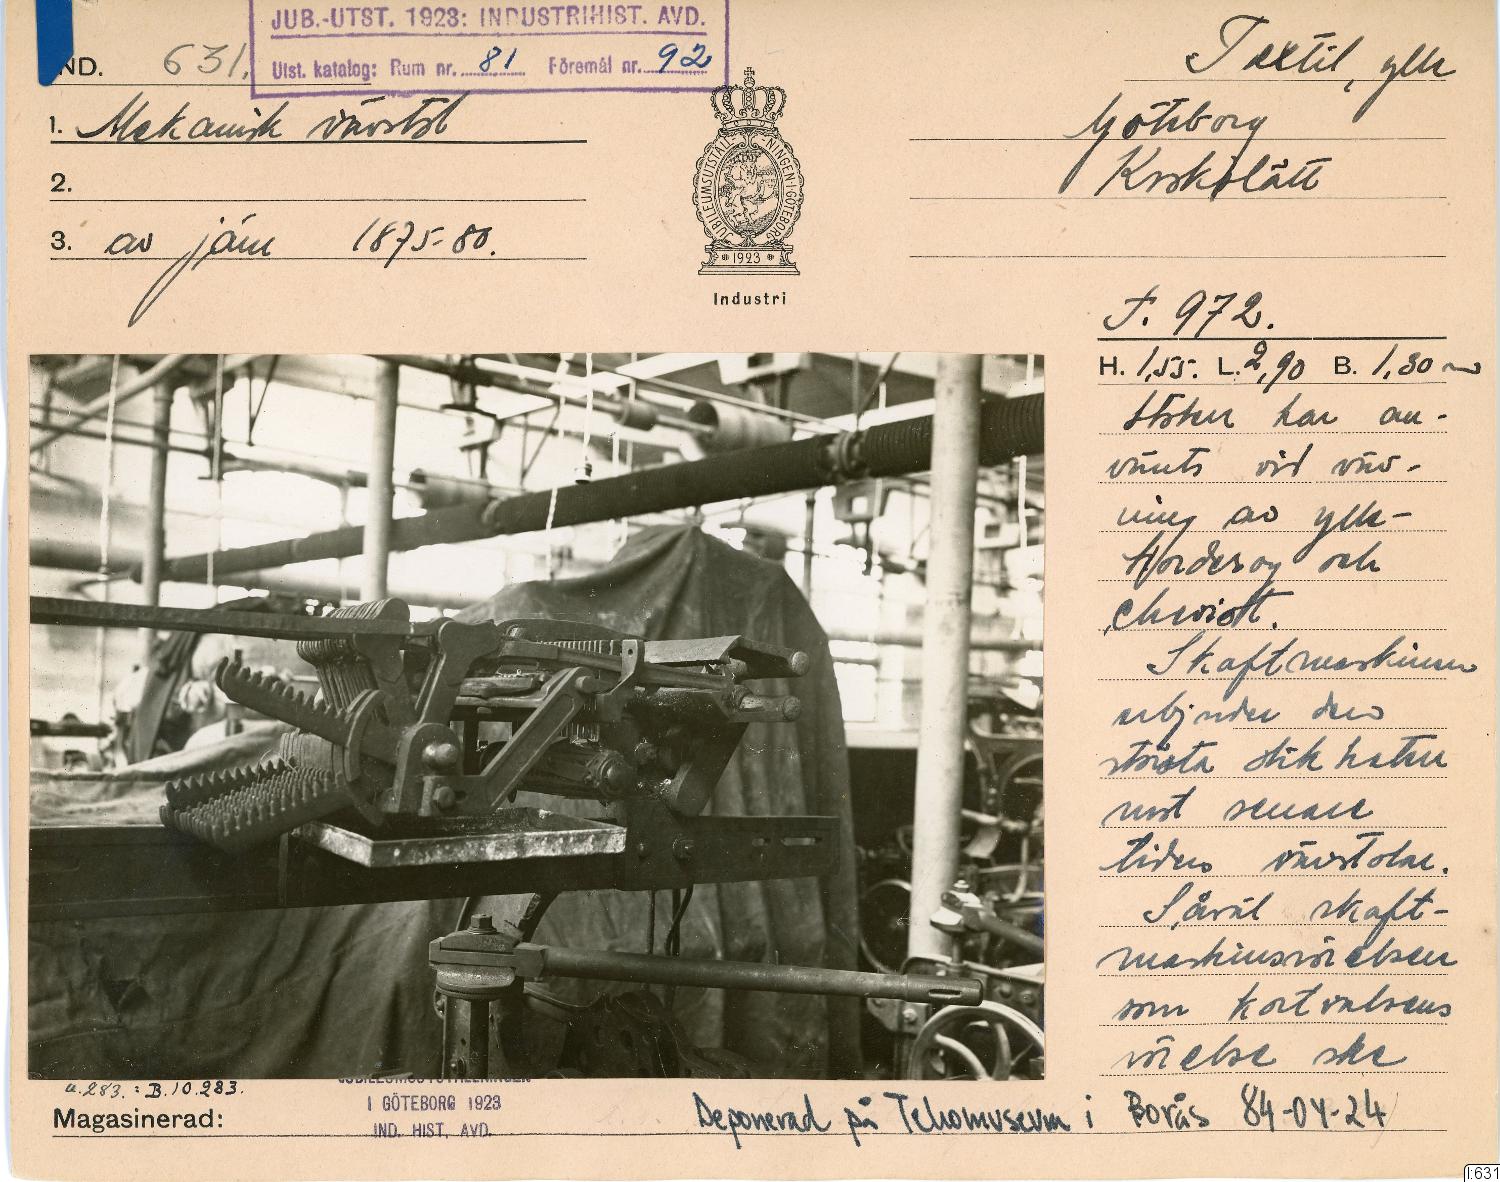 JUB.-UTST. 1923: INDUSTRIHIST. AVD.
Utst. katalog: Rum nr. 81 Föremål nr. 92
ND. 631.
Textil, ylle
1. Mekanisk vävstol
Göteborg
2.
3. av järn 1875-80.
JUBILEUMSUTSTÄLLNINGEN I GÖTEBORG
1923
Industri
F. 972.
H. 1,55. L. 2,90 B. 1,80 m
har an-
vänts vid väv-
ning av ylle-
och
cheviot.
Skaftmaskinen
erbjuder den
största likheten
med senare
tiders vävstolar.
Såväl skaft-
maskinsrörelsen
som kortvalsens
rörelse ske
a.283. : B.10.283.
Magasinerad:
JUBILEUMSUTSTÄLLNINGEN
I GÖTEBORG 1923
IND. HIST. AVD.
Deponerad på Tekomuseum i Borås 84-04-24
I:631